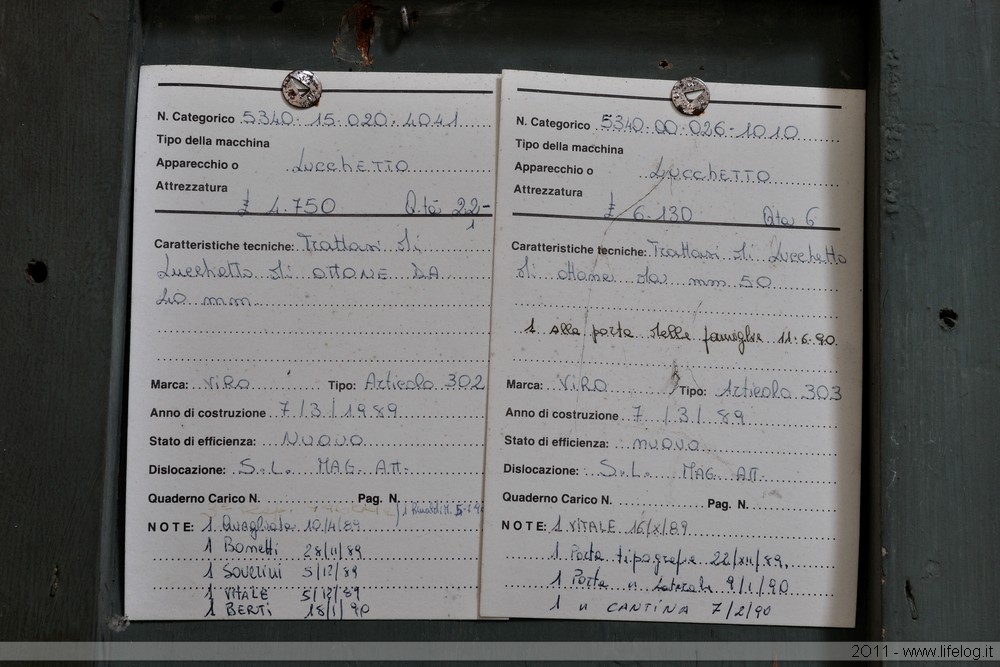 N. Categorico 5340.15.020.4041
Tipo della macchina
Apparecchio o Lucchetto
Attrezzatura
£ 4.750 Q.tà 22-
1
Caratteristiche tecniche: Trattasi di
Lucchetto di OTTONE DA
40 mm.
Marca: VIRO Tipo: Articolo 302
Anno di costruzione 7/3/1989
Stato di efficienza: NUOVO
Dislocazione: S.L. MAG. ATT.
Quaderno Carico N. Pag. N.
NOTE: 1 Quagliata 10/4/89
1 Bonetti 28/11/89
1 5/12/89
1 VITALE 5/12/89
1 BERTI 18/1/90
N. Categorico 5340.00.026-1010
Tipo della macchina
Apparecchio o Lucchetto
Attrezzatura
£ 6.130 Qta 6
Caratteristiche tecniche: Trattasi di Lucchetto
di ottone da mm 50
1 alla porta delle famiglie 11.6.90.
Marca: VIRO Tipo: Articolo 303
Anno di costruzione 7/3/89
Stato di efficienza: nuovo
Dislocazione: S.L. MAG. ATT.
Quaderno Carico N. Pag. N.
NOTE: 1 VITALE 16/X/89
1 Porta tipografia 22/XII/89.
1 Porta laterale 9/1/90
1 CANTINA 7/2/90
2011 - www.lifelog.it